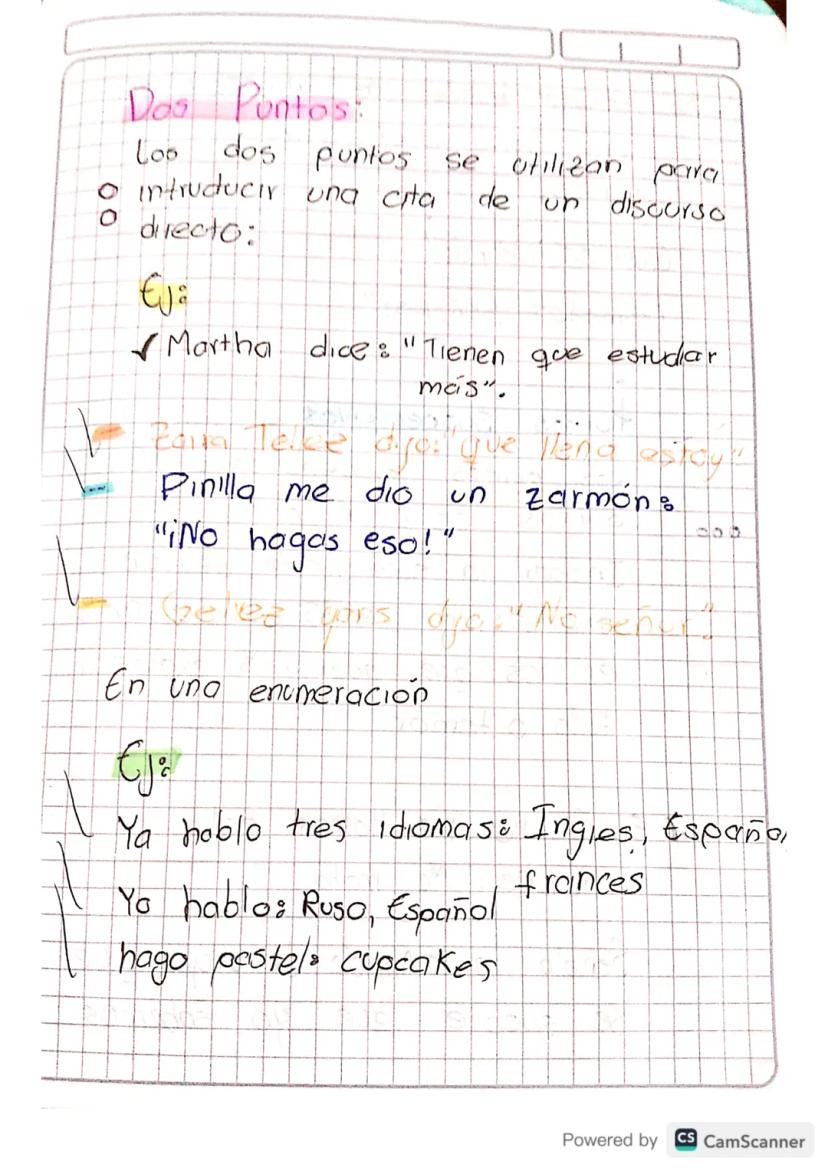 Dos Puntos:
Los dos puntos se utilizan para
introducir una cita de un discurso
directo:
Ej:
✓ Martha dice: "Tienen que estudiar
más".
- dijo: "que llena estoy"
- Pinilla me dio un zarmón:
"¡No hagas eso!"
- dijo: "No señor".
En una enumeración
Ej:
Ya hablo tres idiomas: Ingles, Español,
frances
Yo hablo: Ruso, Español
hago pastel: cupcakes
Powered by CS CamScanner